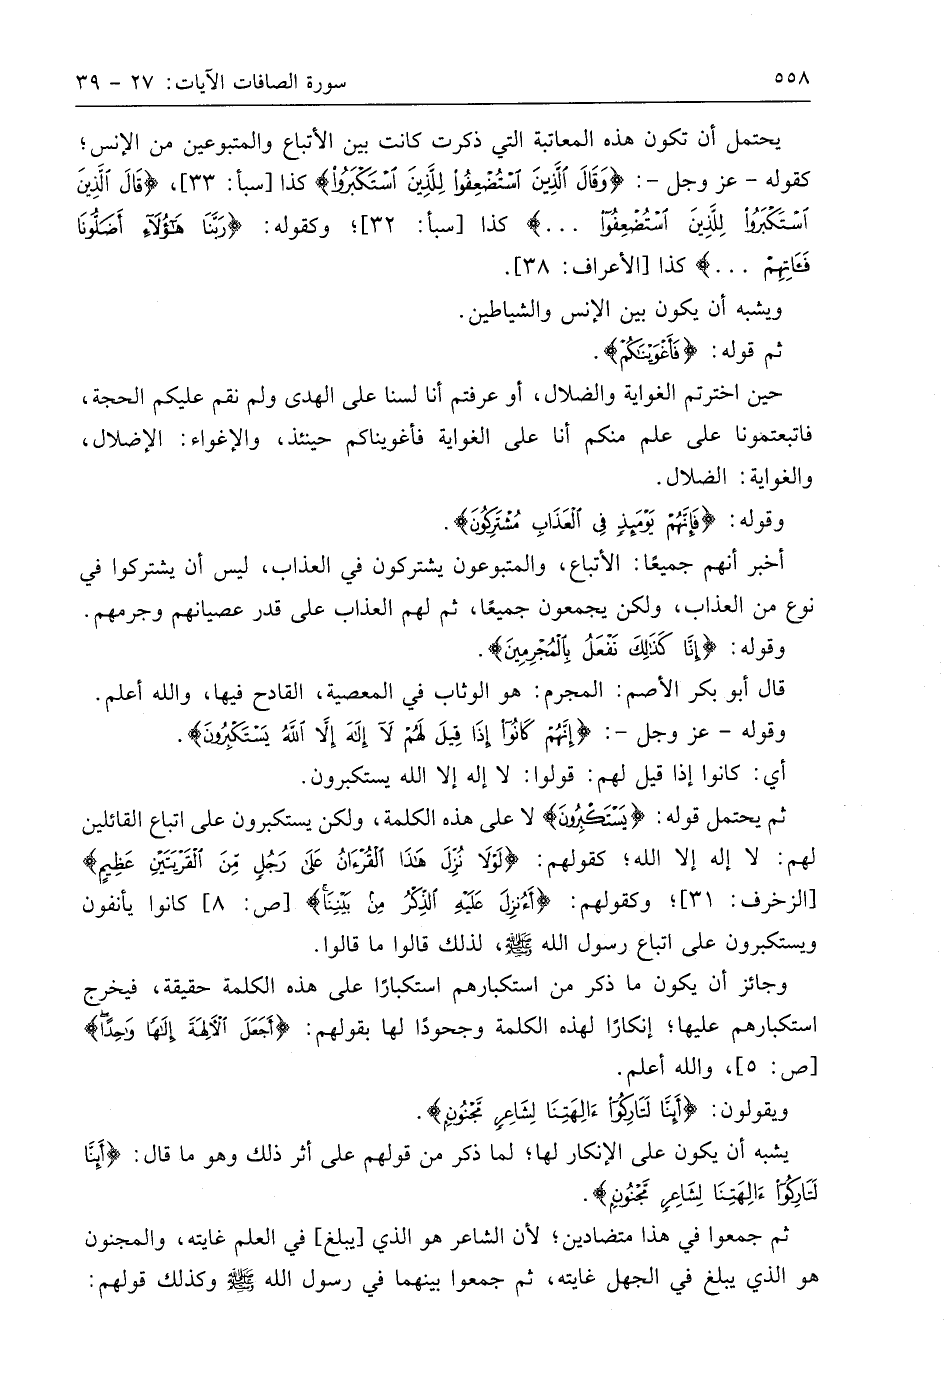 ٥٥٨ سورة الصافات الآيات: ٢٧ - ٣٩
يحتمل أن تكون هذه المعاتبة التي ذكرت كانت بين الأتباع والمتبوعين من الإنس؛
كقوله - عز وجل -: ﴿وَقَالَ ٱلَّذِينَ ٱسْتُضْعِفُوا۟ لِلَّذِينَ ٱسْتَكْبَرُوا۟﴾ كذا [سبأ: ٣٣]، ﴿قَالَ ٱلَّذِينَ
ٱسْتَكْبَرُوا۟ لِلَّذِينَ ٱسْتُضْعِفُوٓا۟ ...﴾ كذا [سبأ: ٣٢]؛ وكقوله: ﴿رَبَّنَا هَٰٓؤُلَآءِ أَضَلُّونَا
فَـَٔاتِهِمْ ...﴾ كذا [الأعراف: ٣٨].
ويشبه أن يكون بين الإنس والشياطين.
ثم قوله: ﴿فَأَغْوَيْنَٰكُمْ﴾.
حين اخترتم الغواية والضلال، أو عرفتم أنا لسنا على الهدى ولم نقم عليكم الحجة،
فاتبعتمونا على علم منكم أنا على الغواية فأغويناكم حينئذ، والإغواء: الإضلال،
والغواية: الضلال.
وقوله: ﴿فَإِنَّهُمْ يَوْمَئِذٍ فِى ٱلْعَذَابِ مُشْتَرِكُونَ﴾.
أخبر أنهم جميعًا: الأتباع، والمتبوعون يشتركون في العذاب، ليس أن يشتركوا في
نوع من العذاب، ولكن يجمعون جميعًا، ثم لهم العذاب على قدر عصيانهم وجرمهم.
وقوله: ﴿إِنَّا كَذَٰلِكَ نَفْعَلُ بِٱلْمُجْرِمِينَ﴾.
قال أبو بكر الأصم: المجرم: هو الوثاب في المعصية، القادح فيها، والله أعلم.
وقوله - عز وجل -: ﴿إِنَّهُمْ كَانُوٓا۟ إِذَا قِيلَ لَهُمْ لَآ إِلَٰهَ إِلَّا ٱللَّهُ يَسْتَكْبِرُونَ﴾.
أي: كانوا إذا قيل لهم: قولوا: لا إله إلا الله يستكبرون.
ثم يحتمل قوله: ﴿يَسْتَكْبِرُونَ﴾ لا على هذه الكلمة، ولكن يستكبرون على اتباع القائلين
لهم: لا إله إلا الله؛ كقولهم: ﴿لَوْلَا نُزِّلَ هَٰذَا ٱلْقُرْءَانُ عَلَىٰ رَجُلٍ مِّنَ ٱلْقَرْيَتَيْنِ عَظِيمٍ﴾
[الزخرف: ٣١]؛ وكقولهم: ﴿أَءُنزِلَ عَلَيْهِ ٱلذِّكْرُ مِنۢ بَيْنِنَا﴾ [ص: ٨] كانوا يأنفون
ويستكبرون على اتباع رسول الله ﷺ، لذلك قالوا ما قالوا.
وجائز أن يكون ما ذكر من استكبارهم استكبارًا على هذه الكلمة حقيقة، فيخرج
استكبارهم عليها؛ إنكارًا لهذه الكلمة وجحودًا لها بقولهم: ﴿أَجَعَلَ ٱلْـَٔالِهَةَ إِلَٰهًا وَٰحِدًا﴾
[ص: ٥]، والله أعلم.
ويقولون: ﴿أَئِنَّا لَتَارِكُوٓا۟ ءَالِهَتِنَا لِشَاعِرٍ مَّجْنُونٍ﴾.
يشبه أن يكون على الإنكار لها؛ لما ذكر من قولهم على أثر ذلك وهو ما قال: ﴿أَئِنَّا
لَتَارِكُوٓا۟ ءَالِهَتِنَا لِشَاعِرٍ مَّجْنُونٍ﴾.
ثم جمعوا في هذا متضادين؛ لأن الشاعر هو الذي [يبلغ] في العلم غايته، والمجنون
هو الذي يبلغ في الجهل غايته، ثم جمعوا بينهما في رسول الله ﷺ وكذلك قولهم: